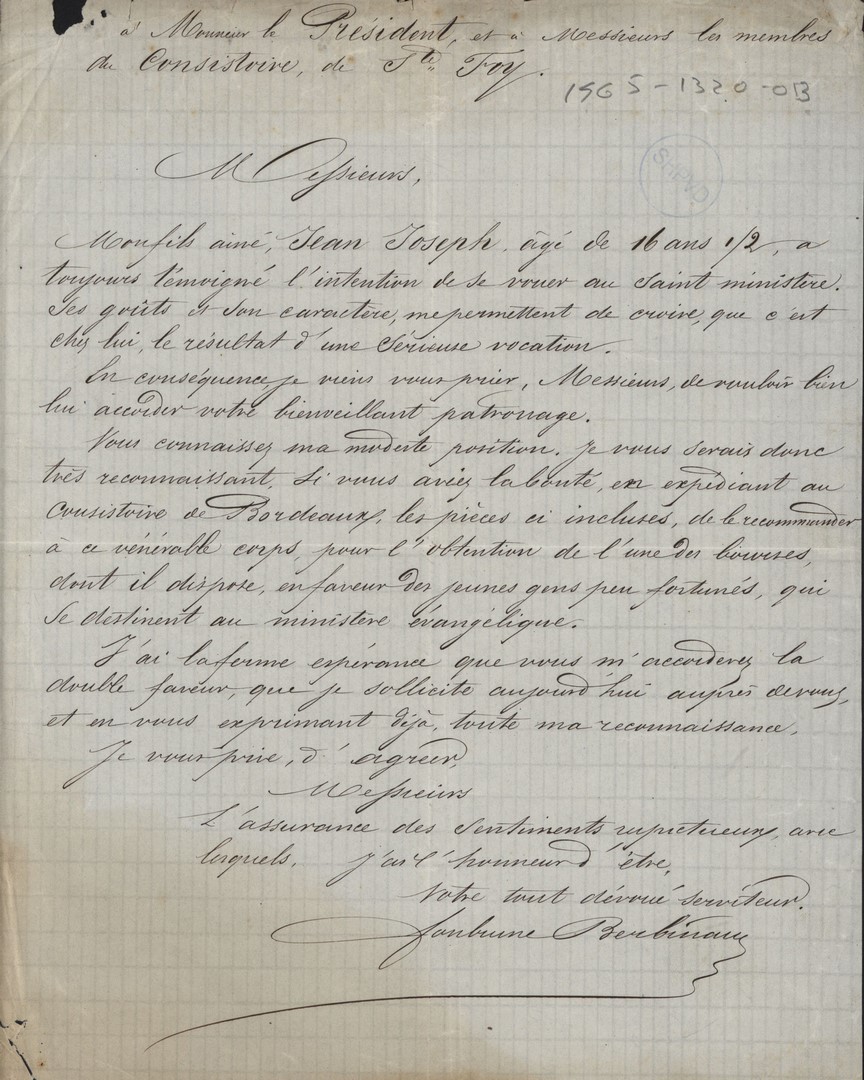 à Monsieur le Président, et à Messieurs les membres
du Consistoire, de Ste Foy.
1965-1320-0B
ShPVD
Messieurs,
Mon fils ainé, Jean Joseph, âgé de 16 ans 1/2, a
toujours témoigné l'intention de se vouer au Saint ministère.
Ses goûts et son caractère, me permettent de croire, que c'est
chez lui, le résultat d'une Sérieuse vocation.
En conséquence, je viens vous prier, Messieurs, de vouloir bien
lui accorder votre bienveillant patronage.
Vous connaissez ma modeste position. Je vous serais donc
très reconnaissant, Si vous aviez la bonté, en expédiant au
Consistoire de Bordeaux, les pièces ci incluses, de le recommander
à ce vénérable corps, pour l'obtention de l'une des bourses,
dont il dispose, en faveur des jeunes gens peu fortunés, qui
Se destinent au ministère évangélique.
J'ai la ferme espérance que vous m'accorderez la
double faveur, que je sollicite aujourd'hui auprès de vous,
et en vous exprimant déjà, toute ma reconnaissance,
Je vous prie, d'agréer,
Messieurs
L'assurance des Sentiments respectueux, avec
lesquels, j'ai l'honneur d'être,
Votre tout dévoué serviteur.
Fonbrune Berbinau